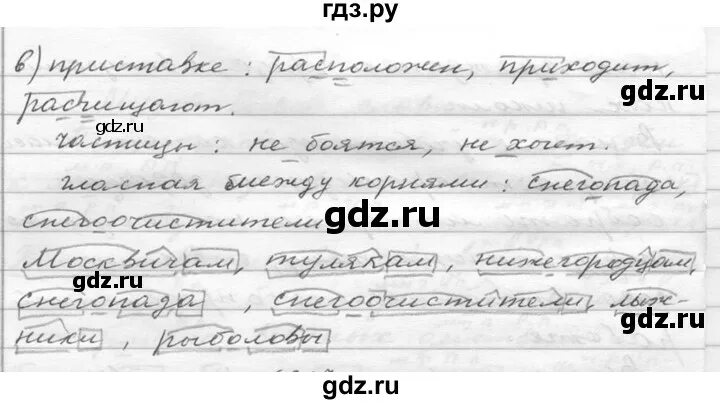 гдз.ру
в) приставке: расположен, приходит,
расчищают.
gdz.ru
gdz.ru
частицы: не боятся, не хочет.
гласная между корнями: снегопада,
снегоочистители
gdz.ru
Москвичам, тулякам, нижегородцам,
gdz.ru
gdz.ru
снегопада, снегоочистители, лыж-
ники, рыболовы
gdz.ru